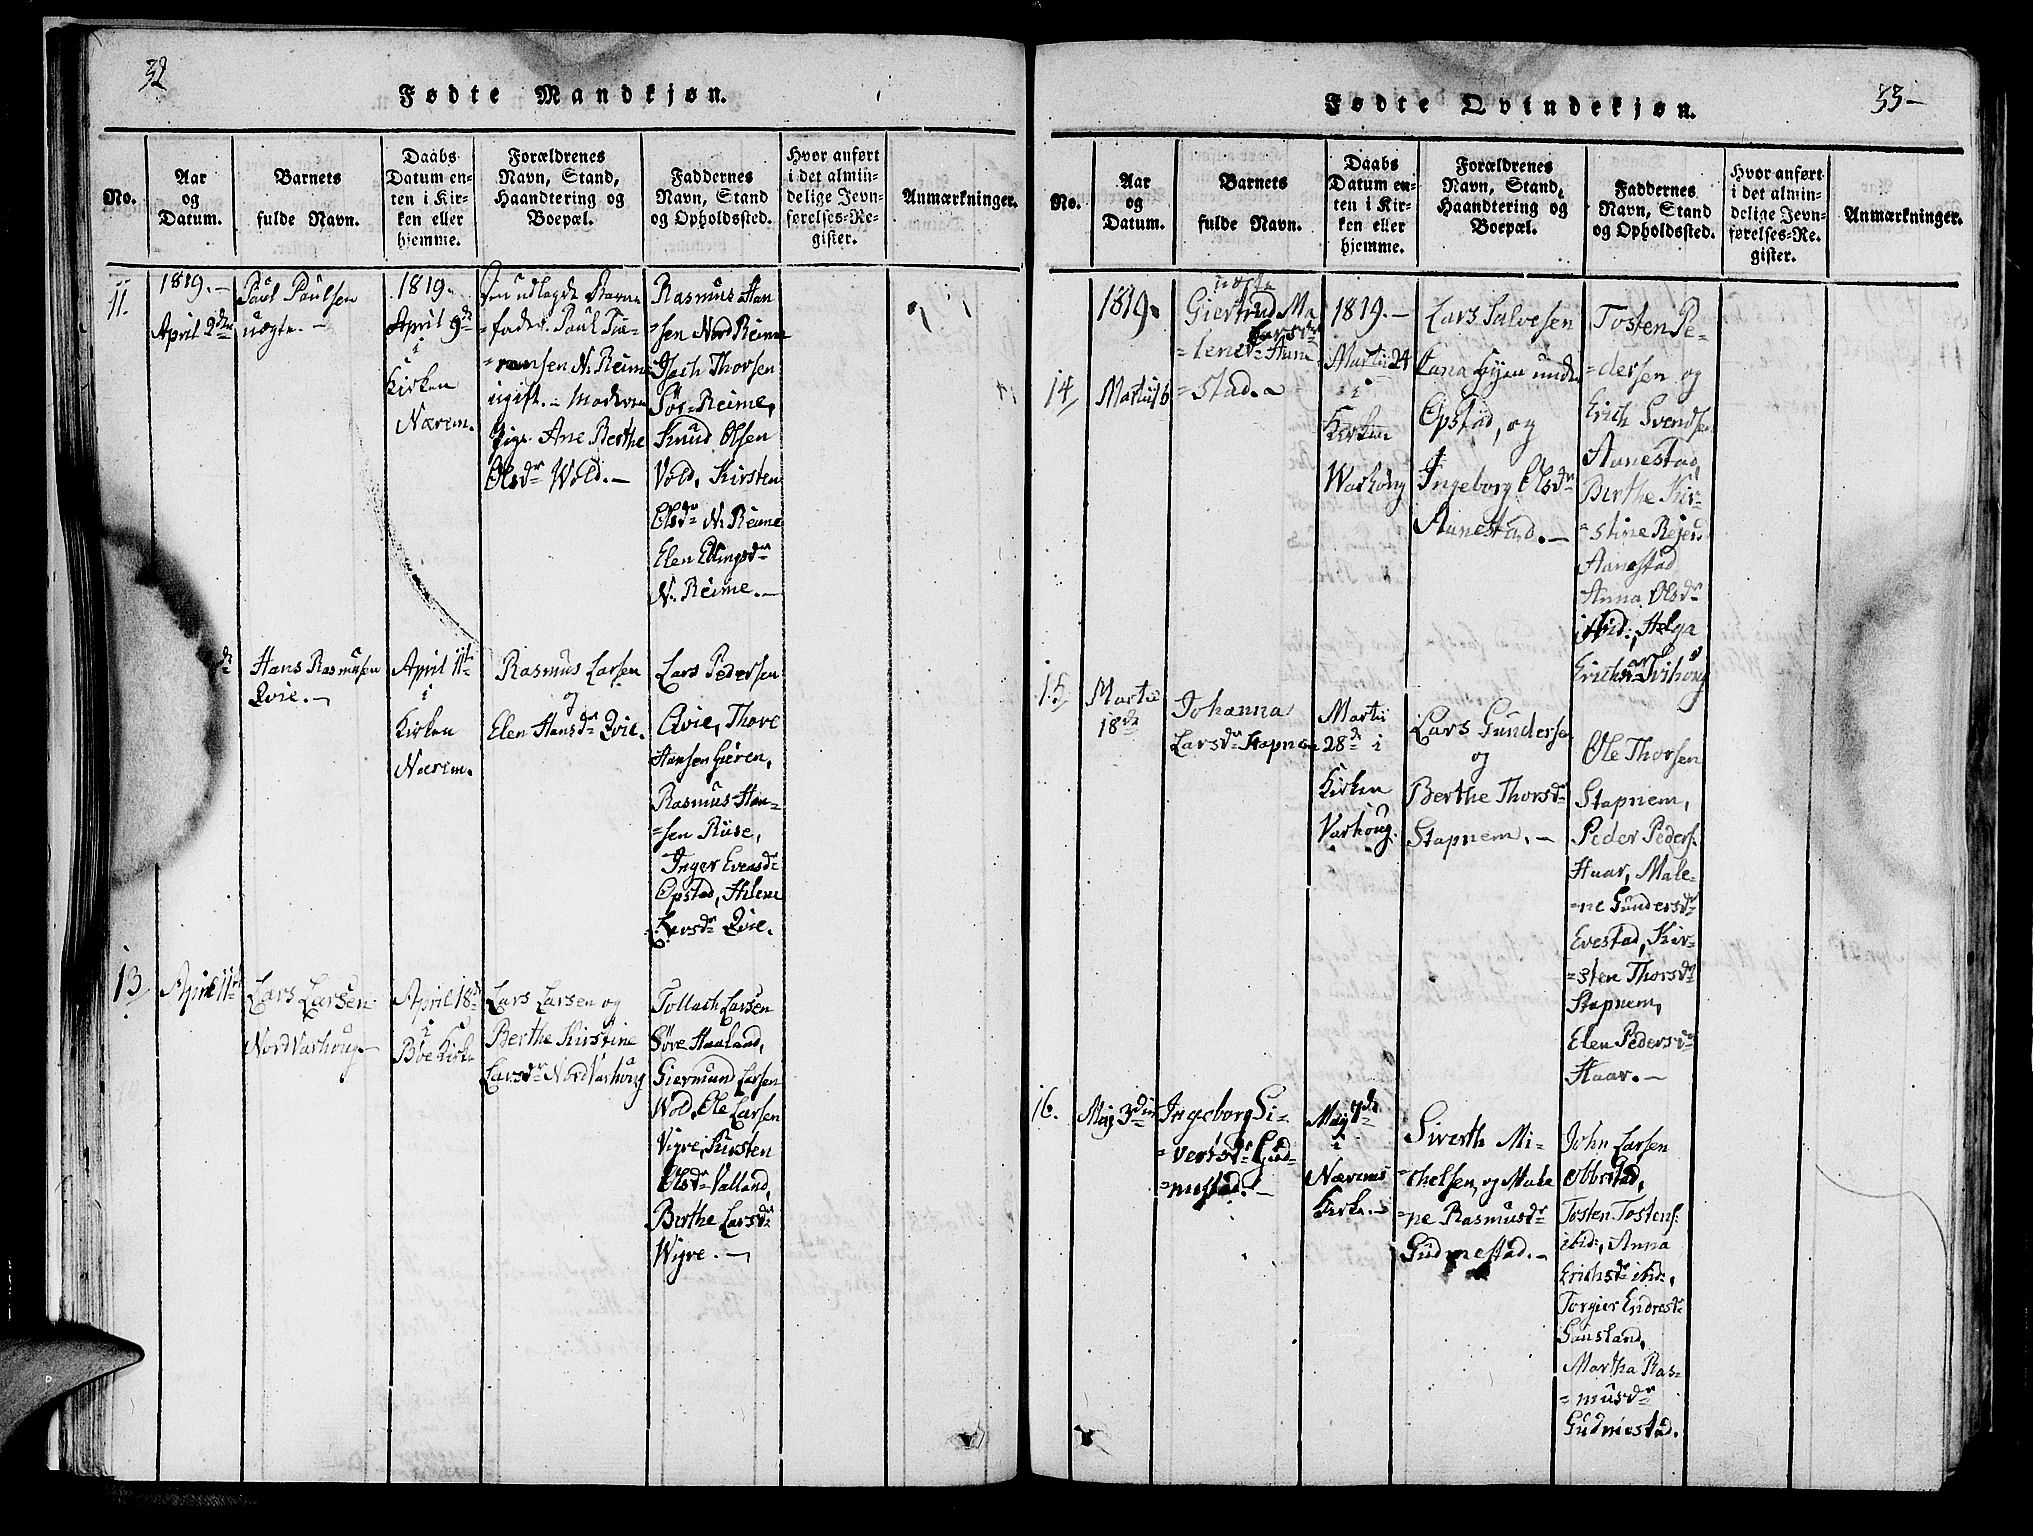 32
Fødte Mandkjøn.
No.
Aar
og
Datum.
Barnets
fulde Navn.
Daabs
Datum en-
ten i Kir-
ken eller
hjemme.
Forældrenes
Navn, Stand,
Haandtering og
Boepæl.
Faddernes
Navn, Stand
og Opholdssted.
Hvor anført
i det almin-
delige Jevn-
førelses-Re-
gister.
Anmærkninger.
11.
1819.-
April 2den
Paul Paulsen
uægte.-
1819.
April 9de
i
Kirken
Nærem.
Den udlagde Barne
=fader Paul
N. Reime
ugift.- Moderen
Pige Ane Berthe
Olsdr Wold.-
Rasmus Han
=sen Nord Reime
Thorsen
Sør-Reime,
Knud Olsen
Vold, Kirsten
Olsdr N. Reime
Elen
N. Reime.-
Hans Rasmusen
Qvie.-
April 11te
i
Kirken
Nærem.
Rasmus Larsen
og
Elen Hansdr Qvie.
Lars Pedersen
Qvie, Thore
Hansen Gieren,
Rasmus Han=
=sen Riise,
Inger Evensdr
Opstad, Helene
Larsdr Qvie.
13.
April 11te
Lars Larsen
Nord Varhoug-
April 18de
i
Boe Kirke
Lars Larsen og
Berthe Kirstine
Larsdr Nord Varhoug
Tollach Larsen
Søre Haaland,
Giermund Larsen
Wold, Ole Larsen
Vigre, Kirsten
Olsdr Valland,
Berthe Larsdr
Wigre.-
33-
Fødte Qvindekjøn.
No.
Aar
og
Datum.
Barnets
fulde Navn.
Daabs
Datum en-
ten i Kir-
ken eller
hjemme.
Forældrenes
Navn, Stand,
Haandtering og
Boepæl.
Faddernes
Navn, Stand
og Opholdssted.
Hvor anført
i det almin-
delige Jevn-
førelses-Re-
gister.
Anmærkninger.
14
1819.
Martii 16
uægte
Giertrud Ma
=lene Larsdr Aane
=stad.
1819.-
Martii 24
i
Kirken
Warhoug
Lars Salvesen
under
Opstad, og
Ingeborg Olsdr
Aanestad.-
Tosten Pe-
=dersen og
Erich Svends.
Aanestad,
Berthe Kir-
=stine
Aanestad
Anna Olsdr
ibid:, Helga
15
Martii
18de
Johanna
Larsdr Stapnem
Martii
28de i
Kirken
Varhoug.
Lars Gundersen
og
Berthe Thorsdr
Stapnem.-
Ole Thorsen
Stapnem,
Peder Peders.
Haar, Male-
=ne Gundersdr
Evestad, Kir-
=sten Thorsdr
Stapnem,
Elen Pedersdr
Haar.-
16.
Maj 3die
Ingeborg Si-
=vertsdr Gud-
=mestad.-
Maj 7de
i
Nærems
Kirke.-
Siverth Mi-
=chelsen, og Male
=ne Rasmusdr
Gudmestad.-
John Larsen
Obbestad,
Tosten Tostens.
ibid:, Anna
Erichsdr ibid:,
Torgier Endresdr
Martha Ras-
=musdr
Gudmestad.